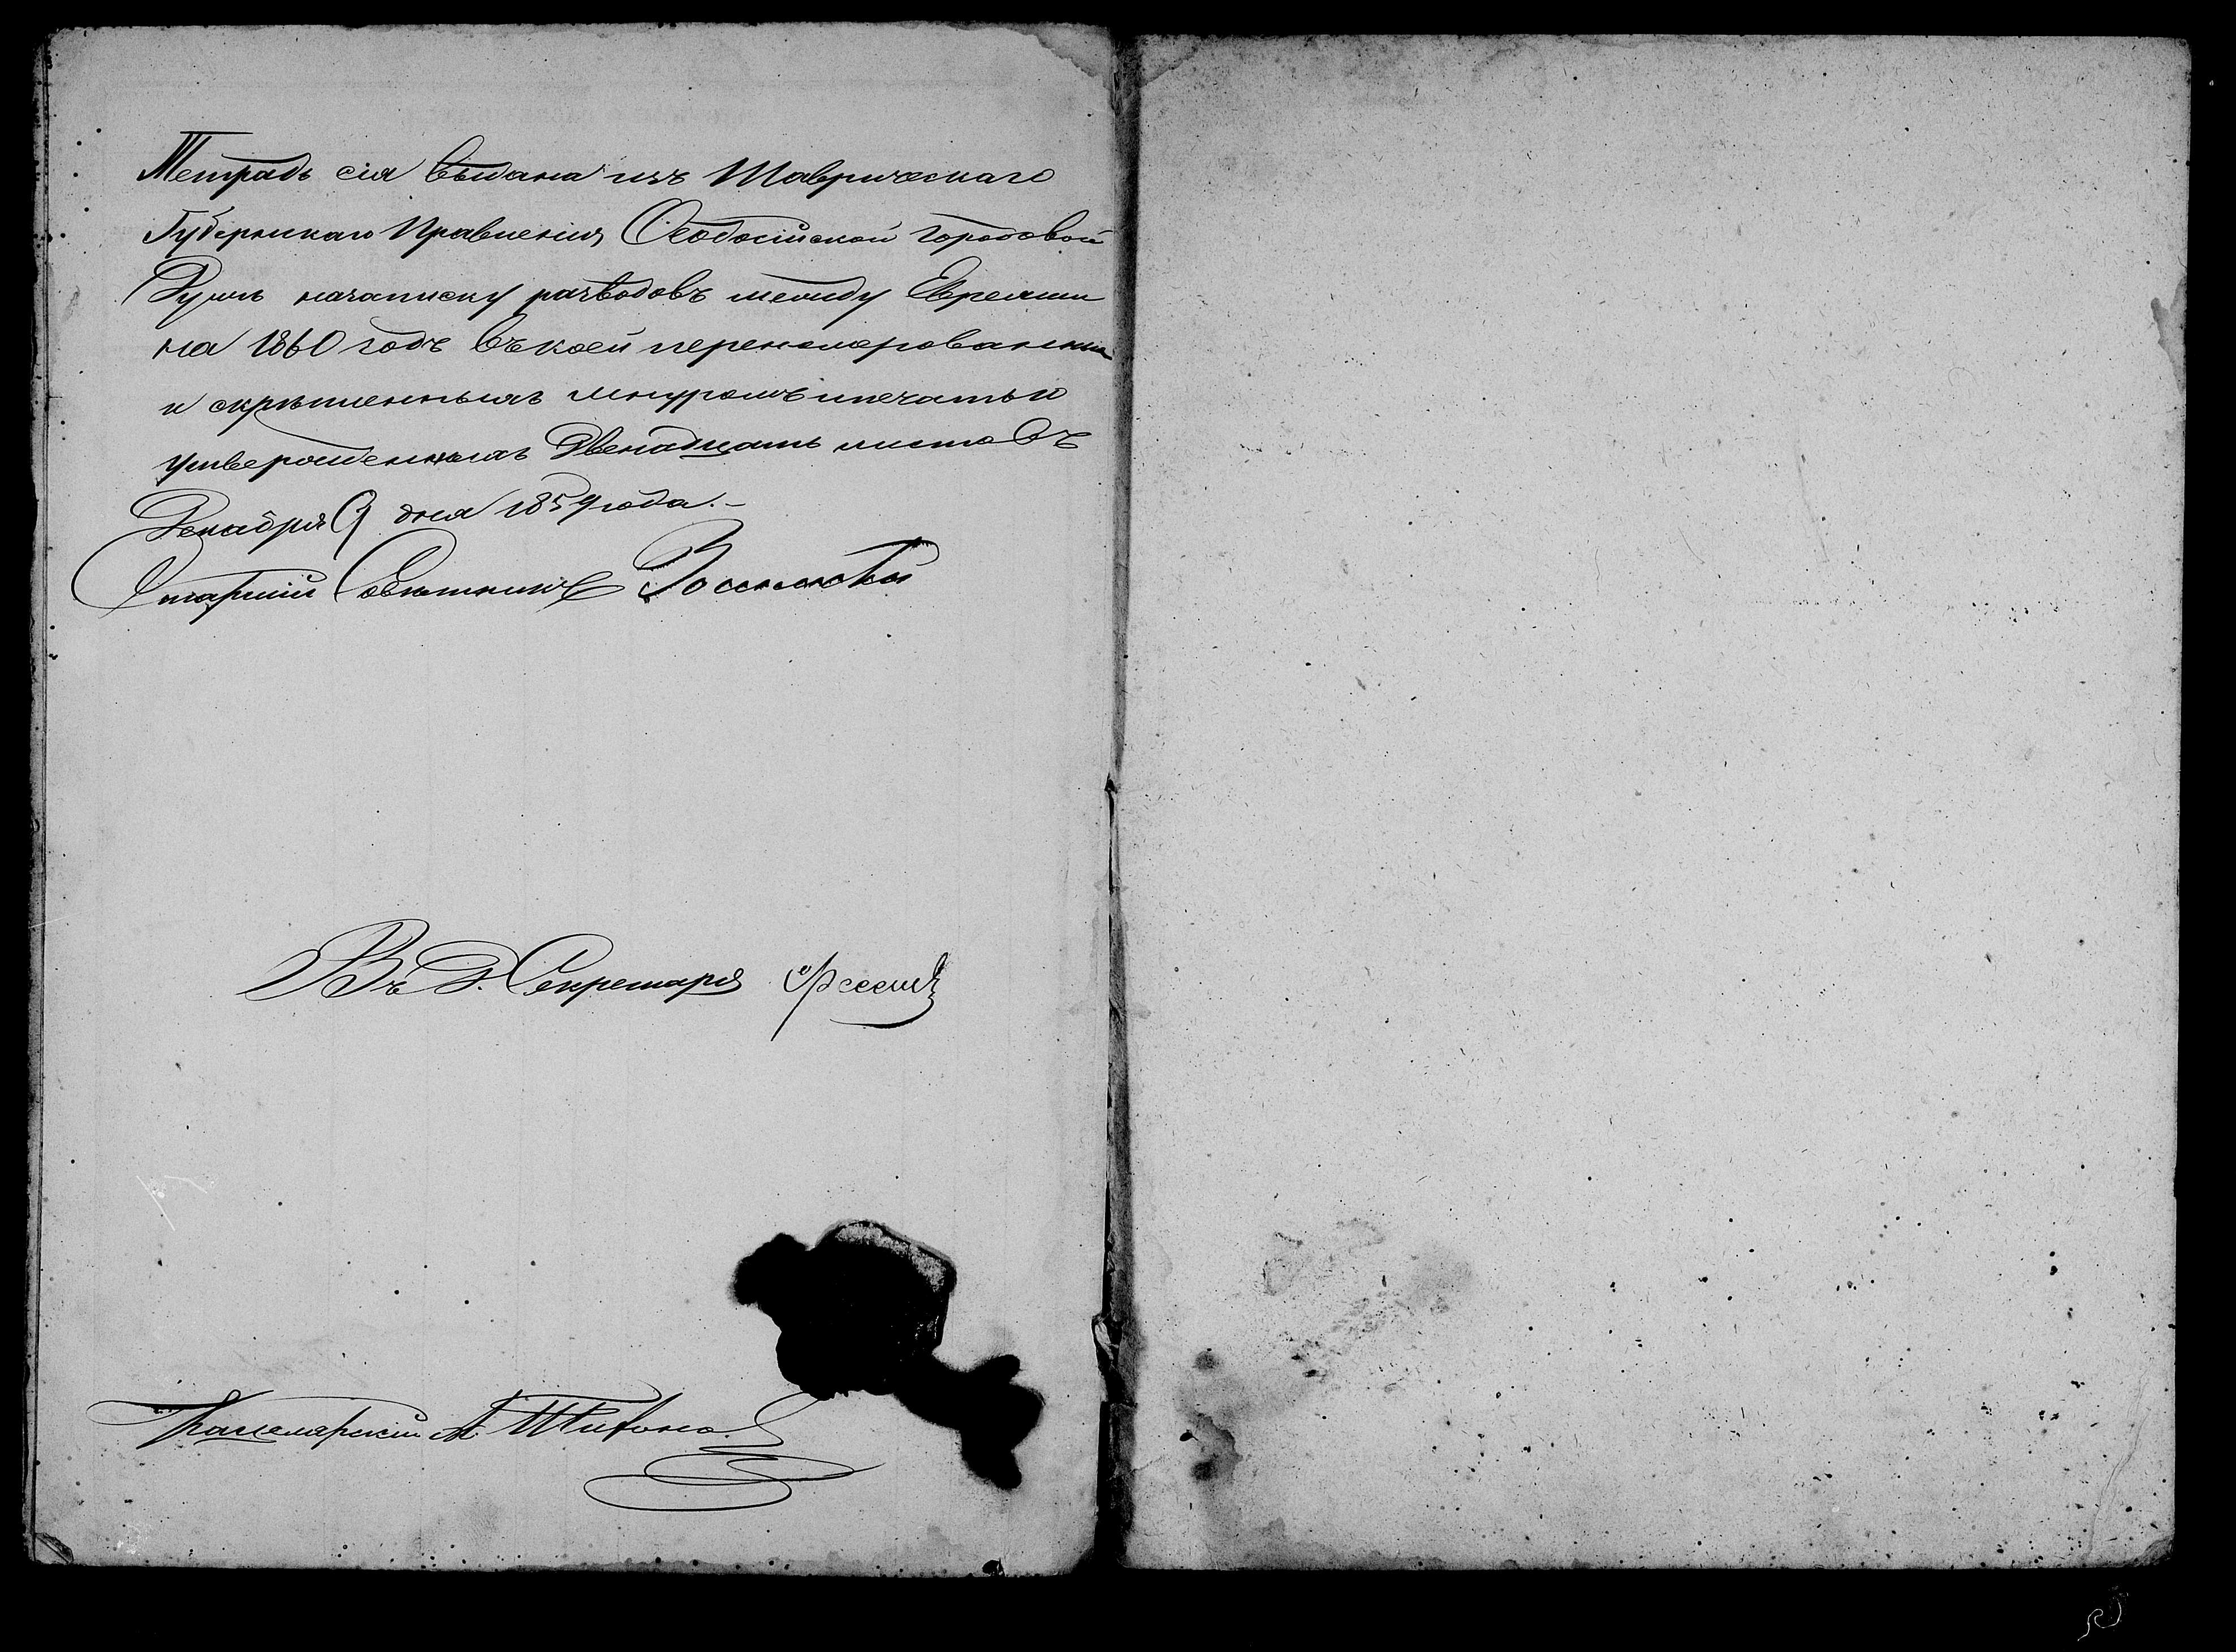 Тетрадь сія выдана изъ Таврическаго
Губернскаго Правленія Ѳеодосійской Городовой
Думѣ на записку разводовъ между Евреями
на 1860 годъ въ коей перенумерованныхъ
и скрѣпленныхъ шнуромъ и печатью
утвержденныхъ Двенадцать листовъ
Декабря 9 дня 1859 года.-
Старшій Совѣтникъ
Въ д. Секретаря
Канцелярскій А. Тифоно